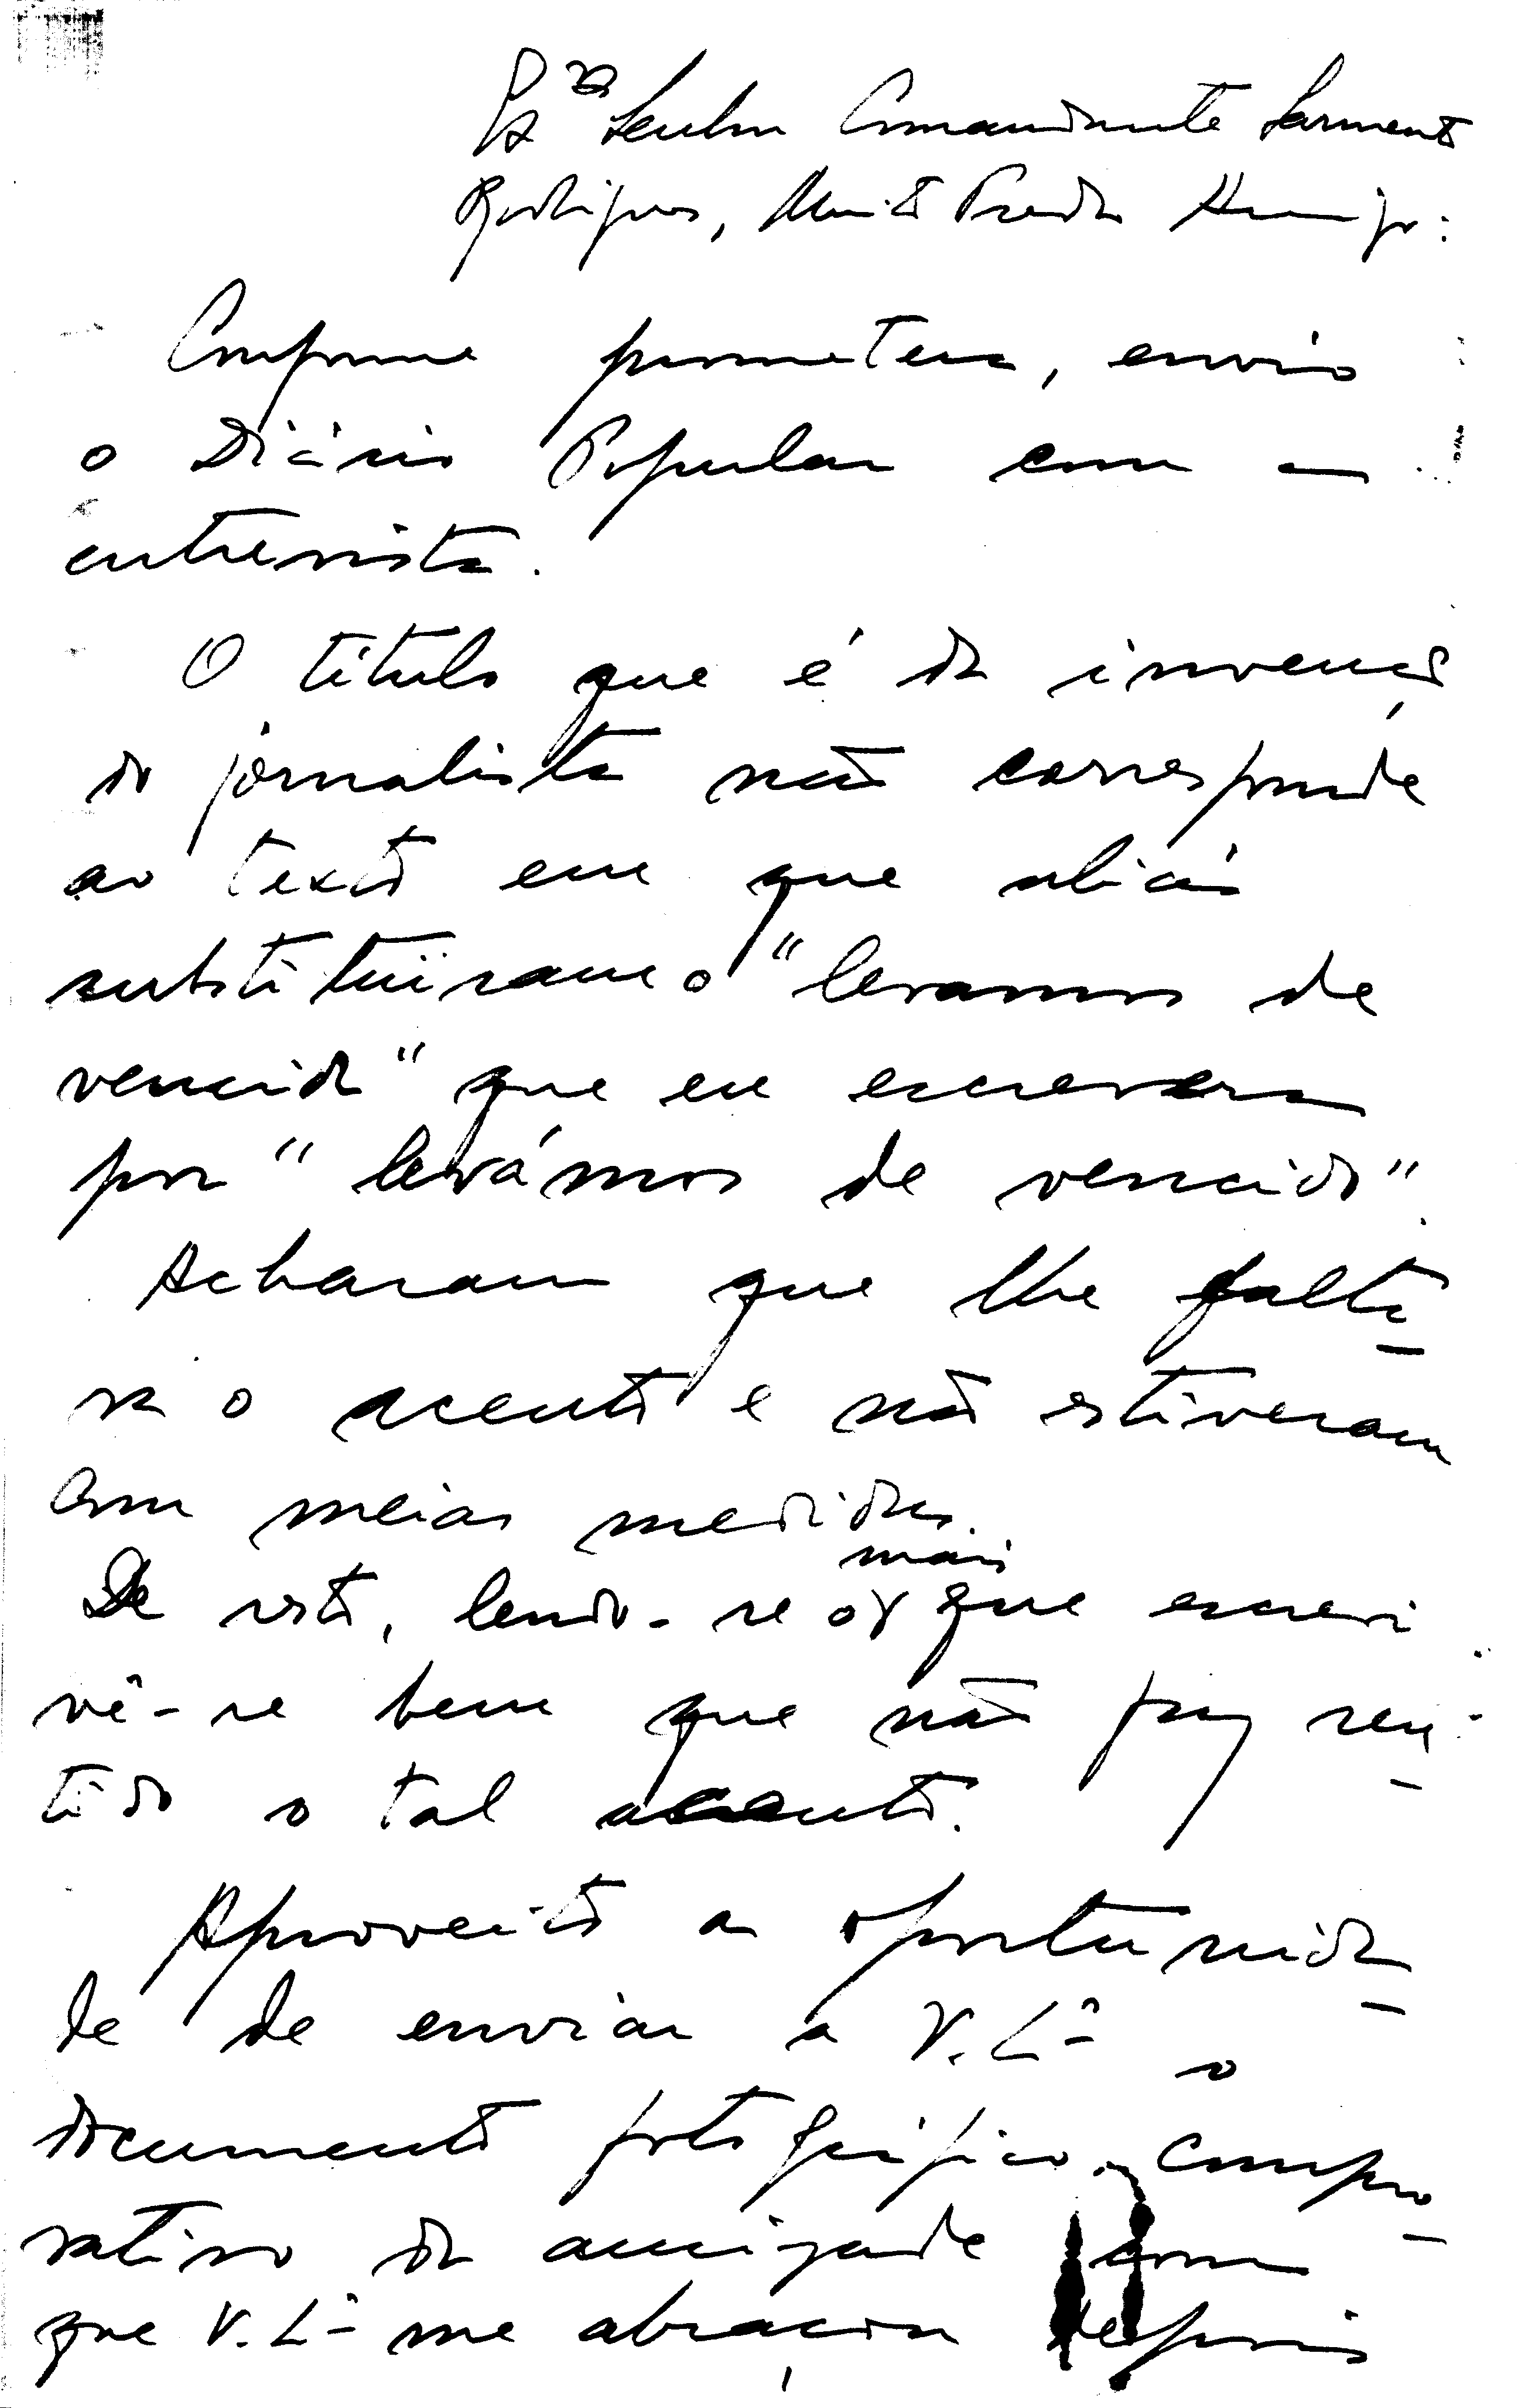 Exmo Senhor Comandante Sarmento
Rodrigues, Muito Prezado Amigo:
Conforme prometera, envio
o Diário Popular com a
entrevista.
O título que é da invenção
do jornalista não corresponde
ao texto em que aliás
substituiram o "levamos de
vencida" que eu escrevera
por "levámos de vencido".
Acharam que lhe falta-
va o acento e não estiveram
com meias medidas.
De resto, lendo-se o mais que escrevi
vê-se bem que não faz sen-
tido o tal acento.
Aproveito a oportunida-
de de enviar a V. Eª o
documento fotográfico compro-
vativo da amizade com
que V. Eª me abraçou depois